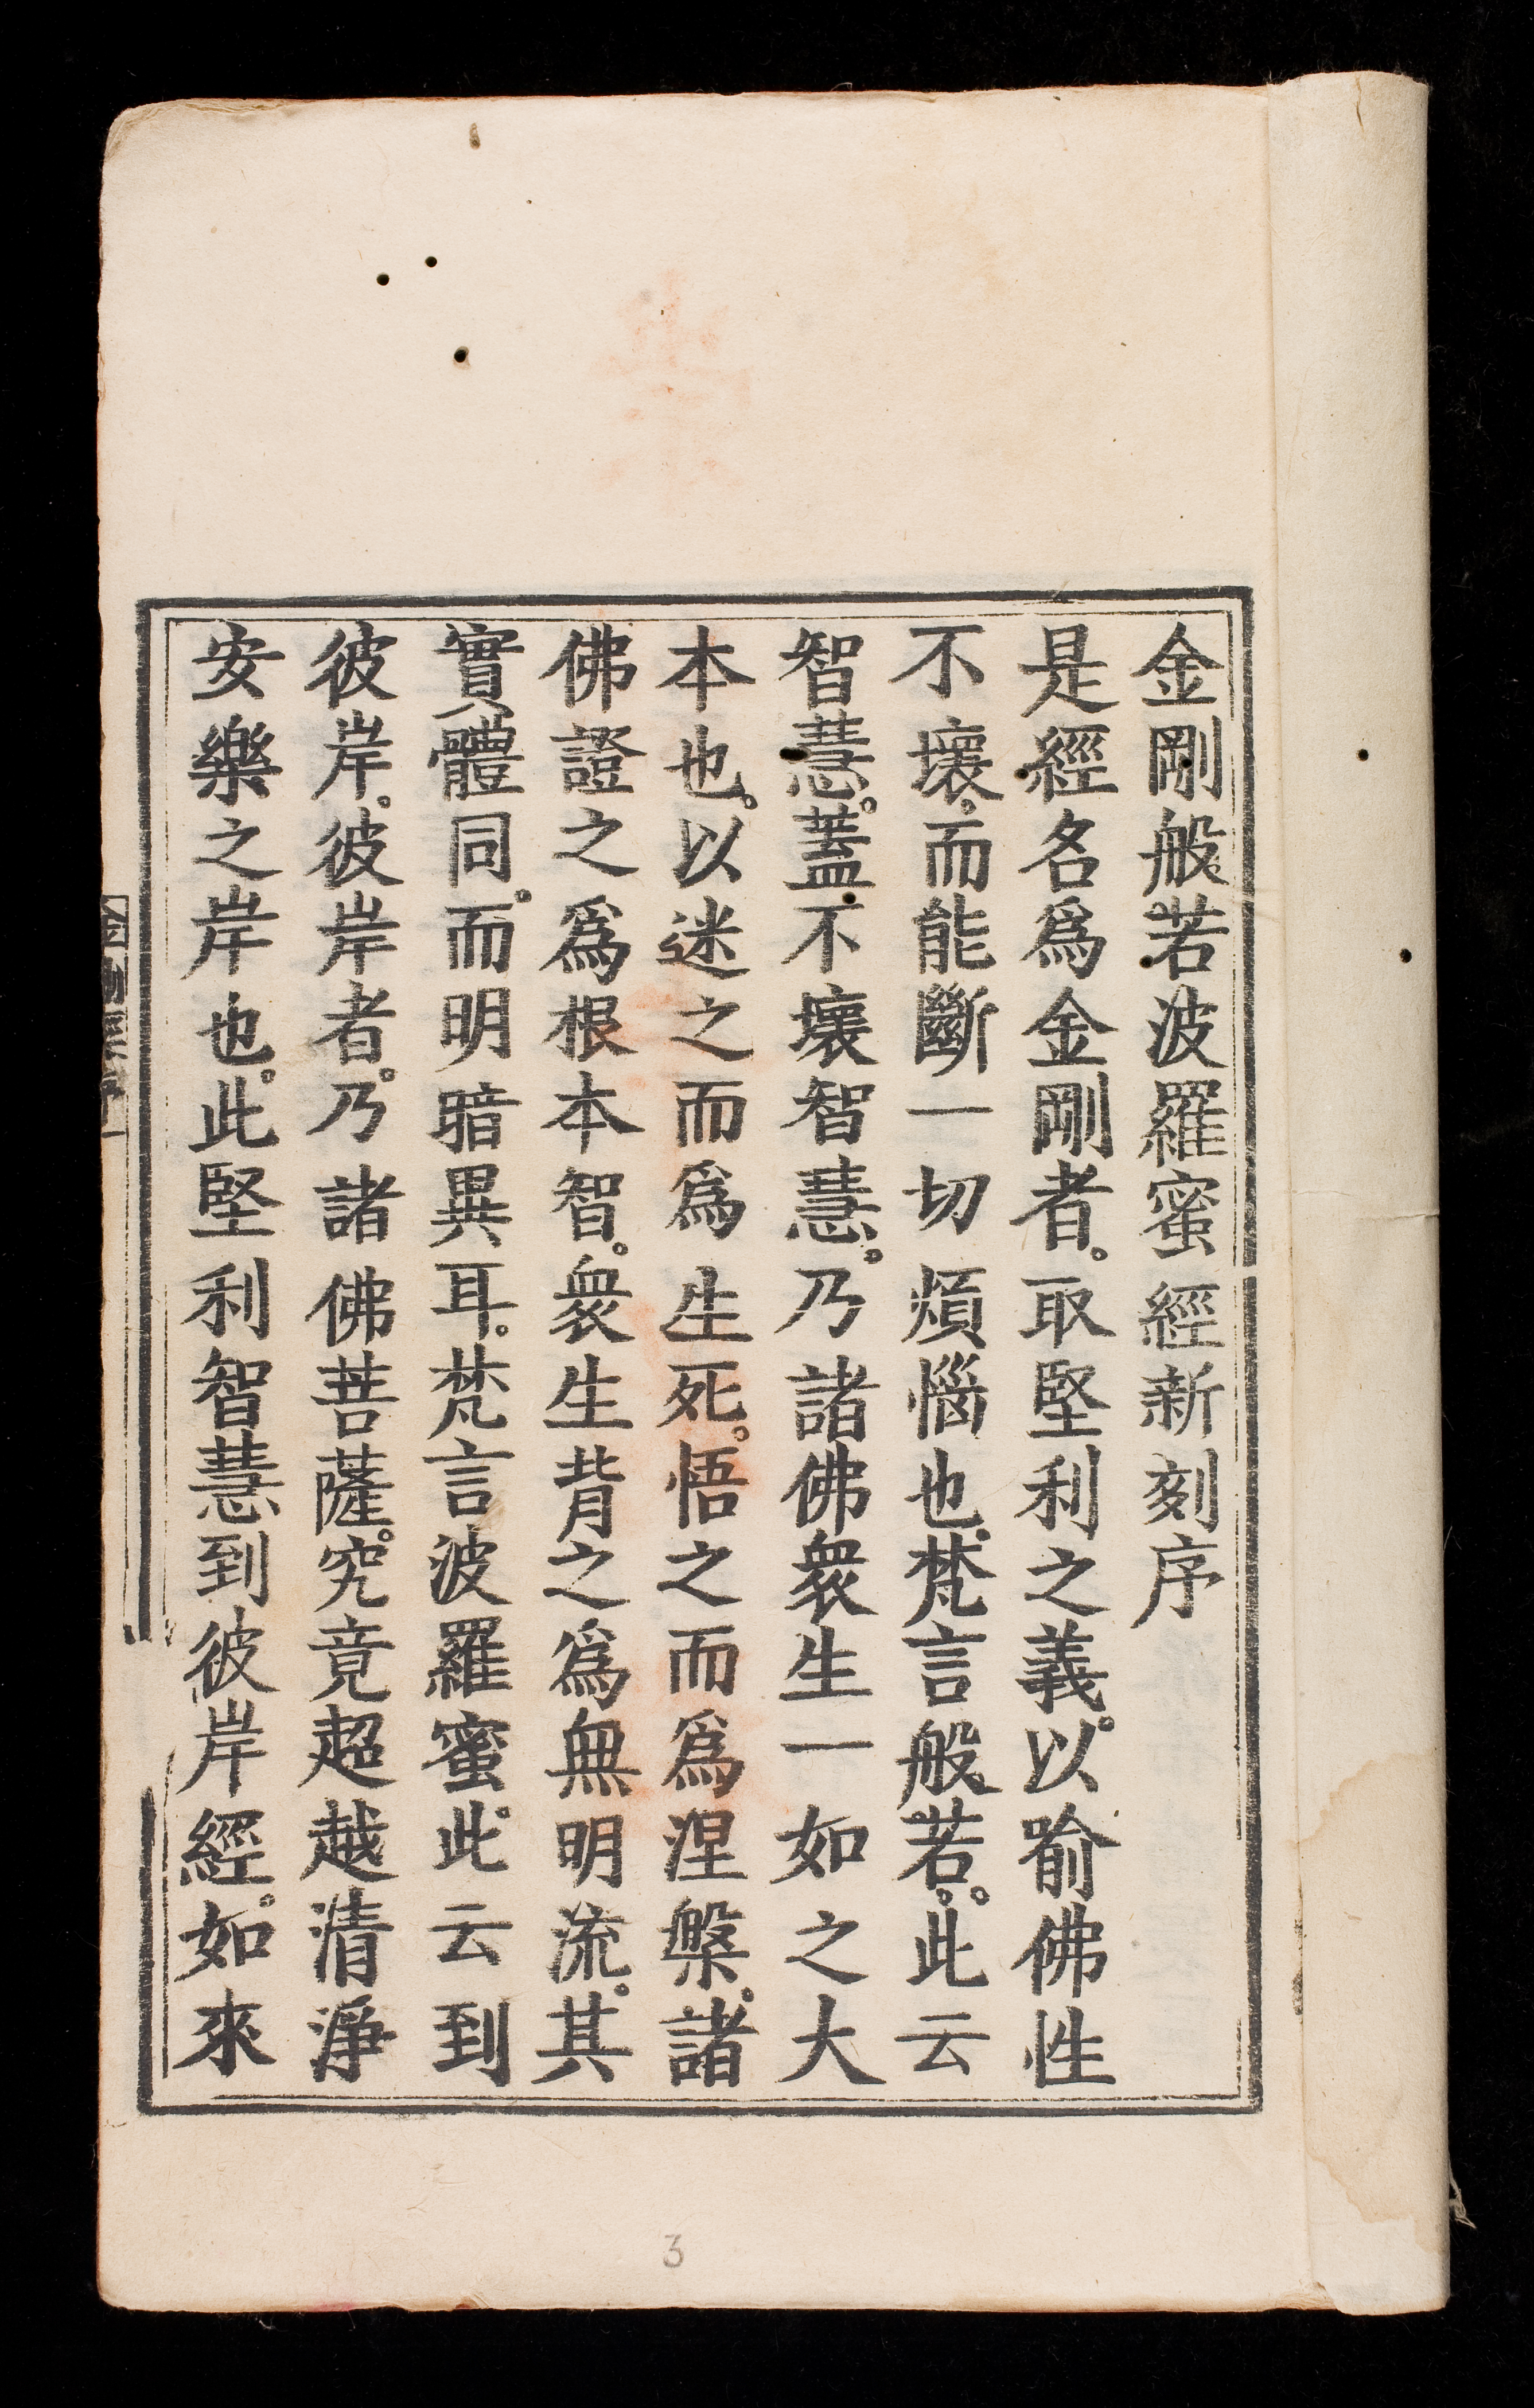 金剛般若波羅蜜經新刻序
是經名爲金剛者。取堅利之義。以喻佛性
不壞。而能斷一切煩惱也。梵言般若。此云
智慧。蓋不壞智慧。乃諸佛衆生一如之大
本也。以迷之而爲生死。悟之而爲涅槃。諸
佛證之爲根本智。衆生背之爲無明流。其
實體同。而明暗異耳。梵言波羅蜜。此云到
彼岸。彼岸者。乃諸佛菩薩。究竟超越清淨
安樂之岸也。此堅利智慧到彼岸經。如來
3